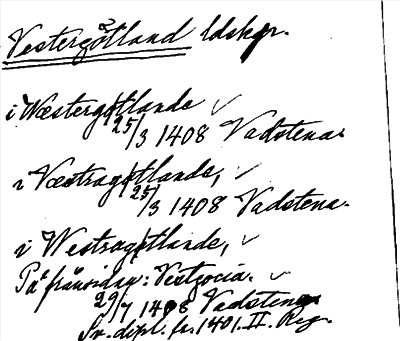 Vestergötland ldskp.
i Wæstergøtlande
25/3 1408 Vadstena.
i Væstragøtlande,
25/3 1408 Vadstena.
i Westragøtlande,
På frånsidan: Vestgocia.
29/7 1408 Vadstena
Sv. dipl. fr. 1401. II. Reg.